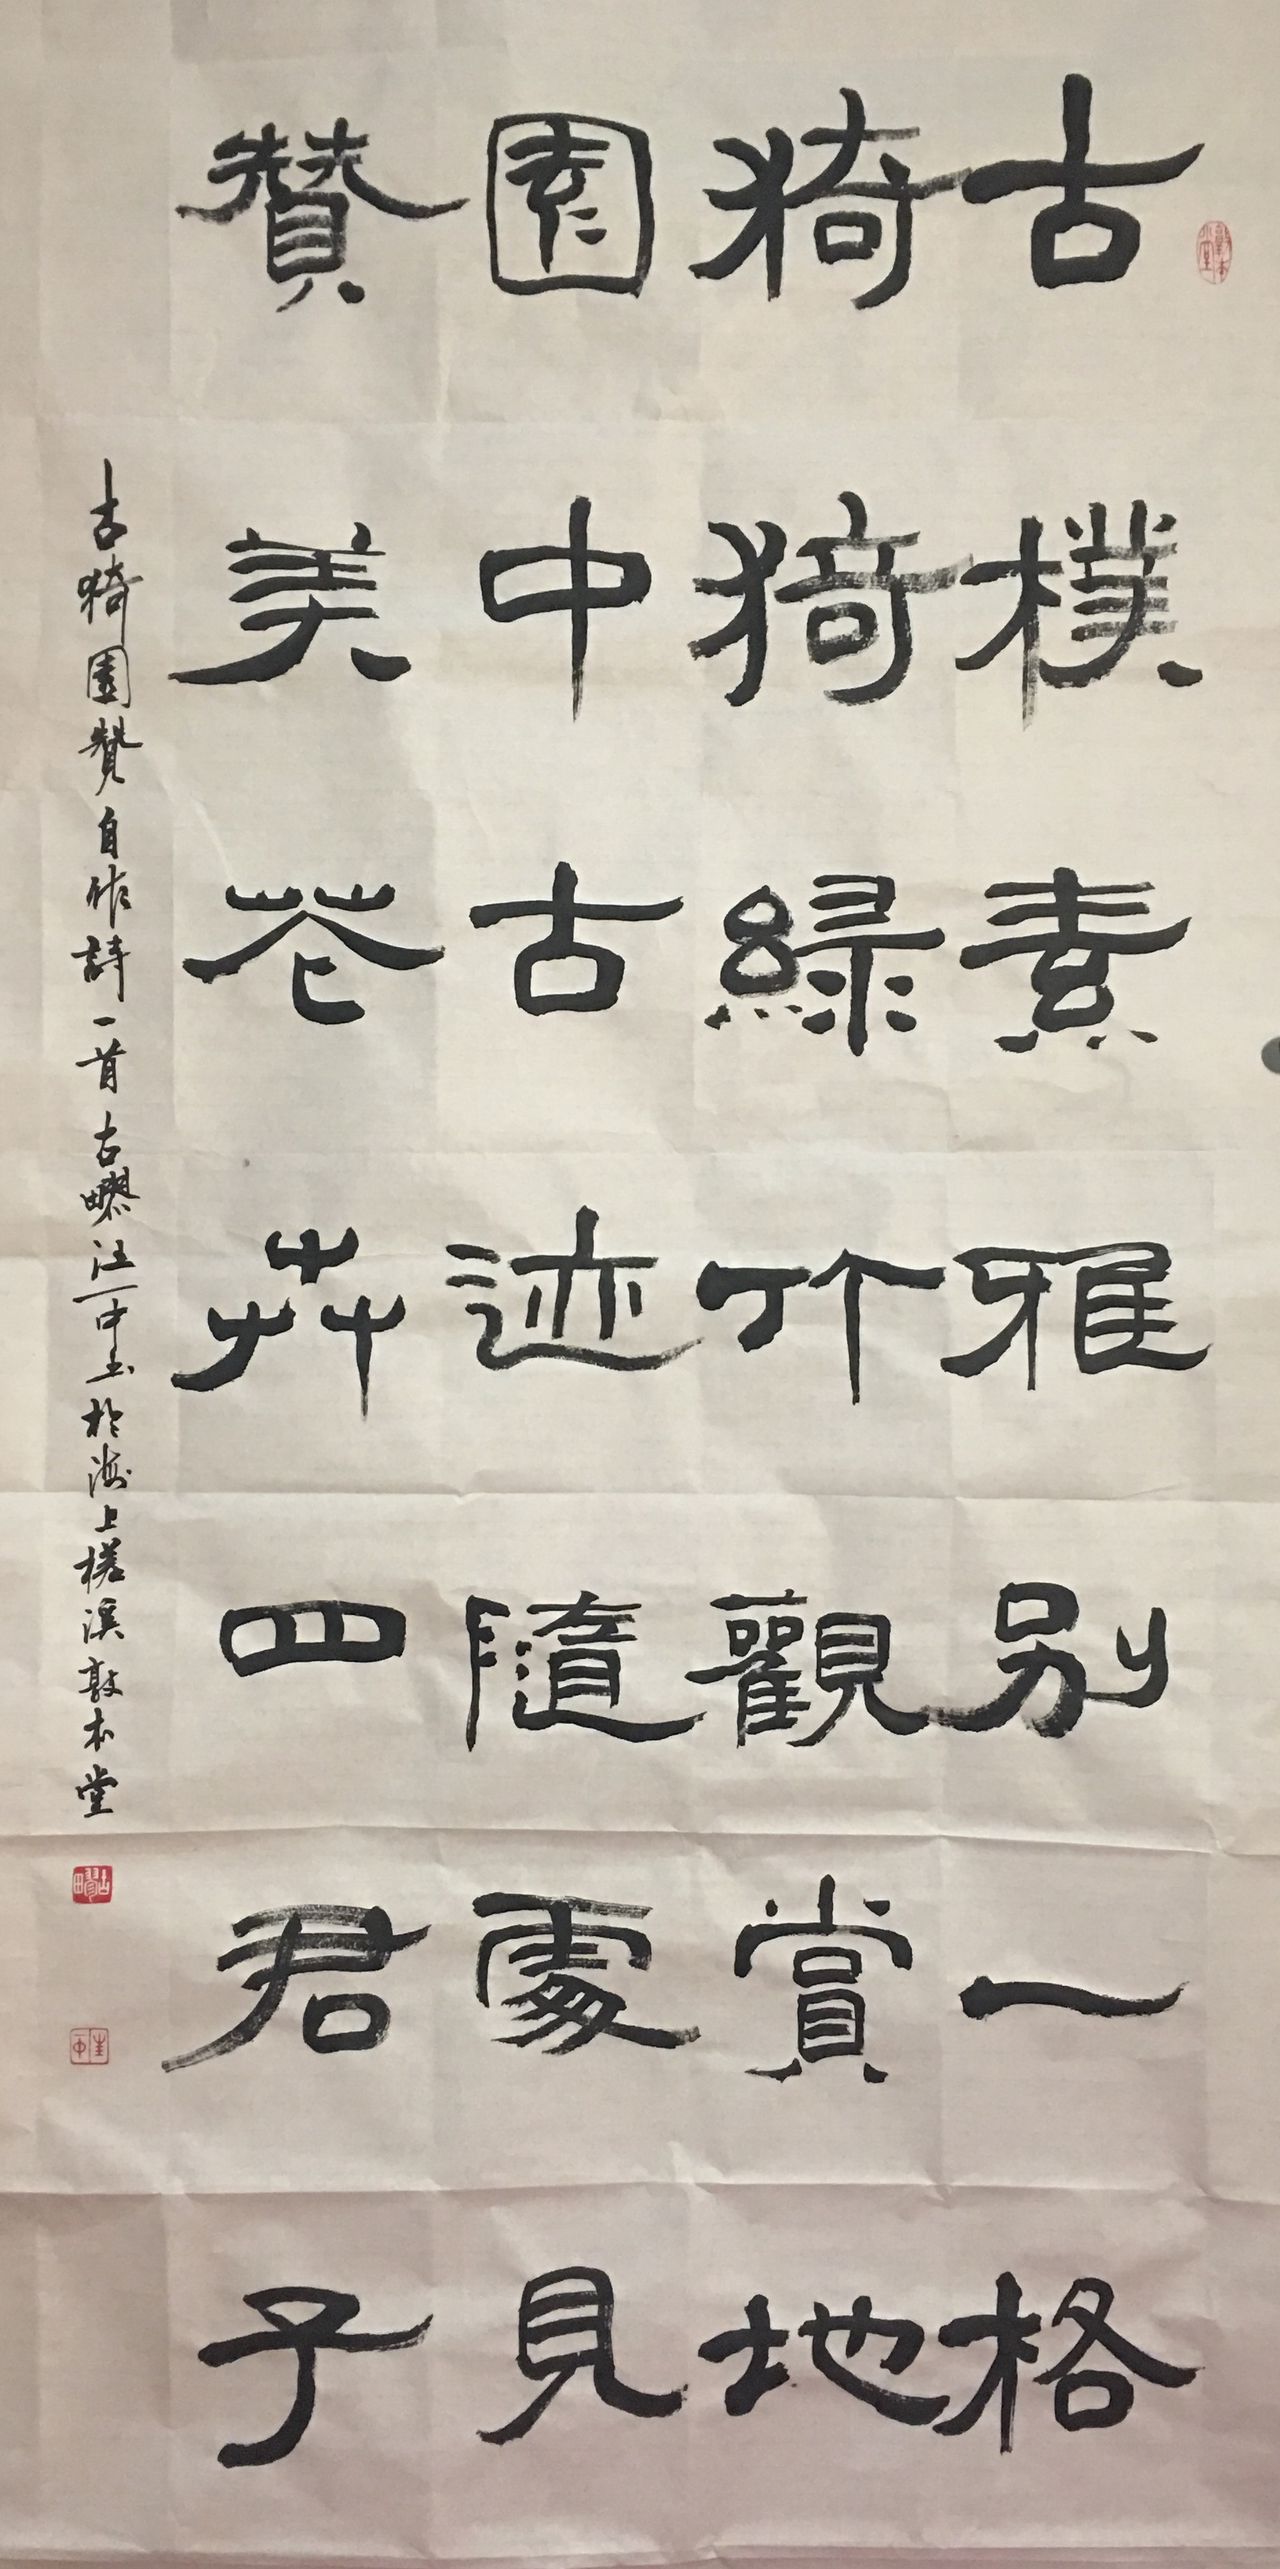 古樸素雅別一格
猗猗綠竹觀賞地
園中古迹隨處見
贊美花卉四君子
古猗園贊自作詩一首古疁汪一中书於海上槎溪敦本堂
古疁